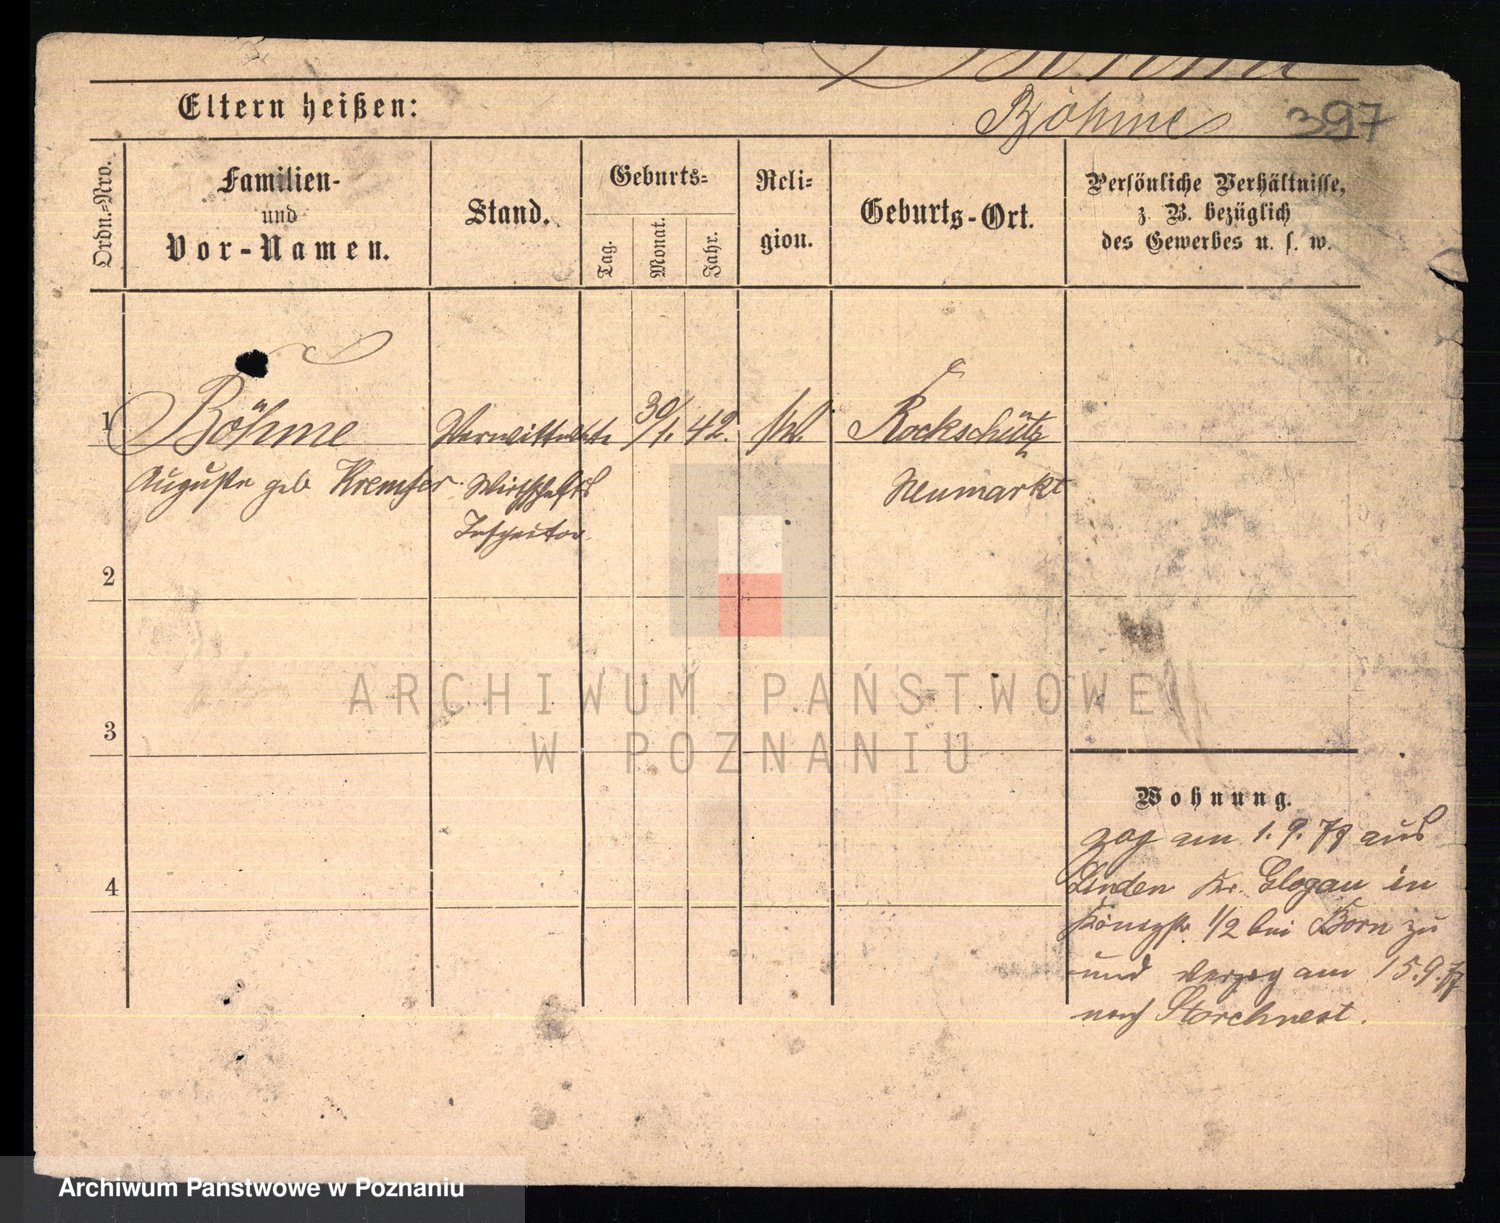 Böhme
Eltern heißen:
Böhme 397
Ordn.-Nro.
Familien-
und
Vor-Namen.
Stand.
Geburts-
Tag.
Monat.
Jahr.
Reli-
gion.
Geburts-Ort.
Persönliche Verhältnisse,
z. B. bezüglich
des Gewerbes u. s. w.
1 Böhme Verwittwete 30/1. 42. Rockschütz
Auguste geb Kremser Wirthschafts Neumarkt
Inspector
2
3
4
Wohnung.
zog am 1. 9. 77 aus
Linden Kr. Glogau in
Königstr. 1/2 bei Born zu
und verzog am 15.9.77
nach Storchnest.
ARCHIWUM PAŃSTWOWE
W POZNANIU
Archiwum Państwowe w Poznaniu